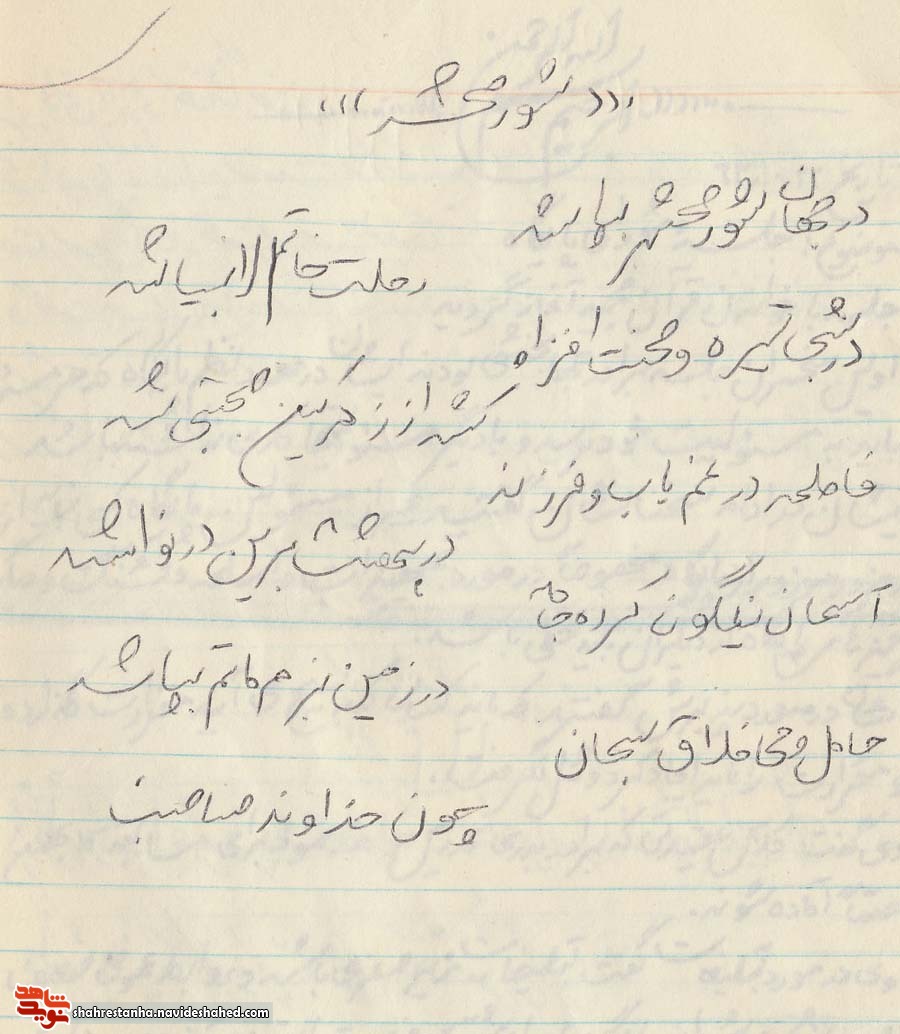 ((( شور محشر )))
در جهان شور محشر بپا شد
رحلت خاتم الانبیا شد
در شبی تیره و محنت افزا
کشته از زهر کین مجتبی شد
فاطمه در غم باب و فرزند
در بهشت برین در نوا شد
آسمان نیلگون کرده جامه
در زمین بزم ماتم بپا شد
حامل وحی خلاق سبحان
چون خداوند صاحب
نوید شاهد
shahrestanha.navideshahed.com